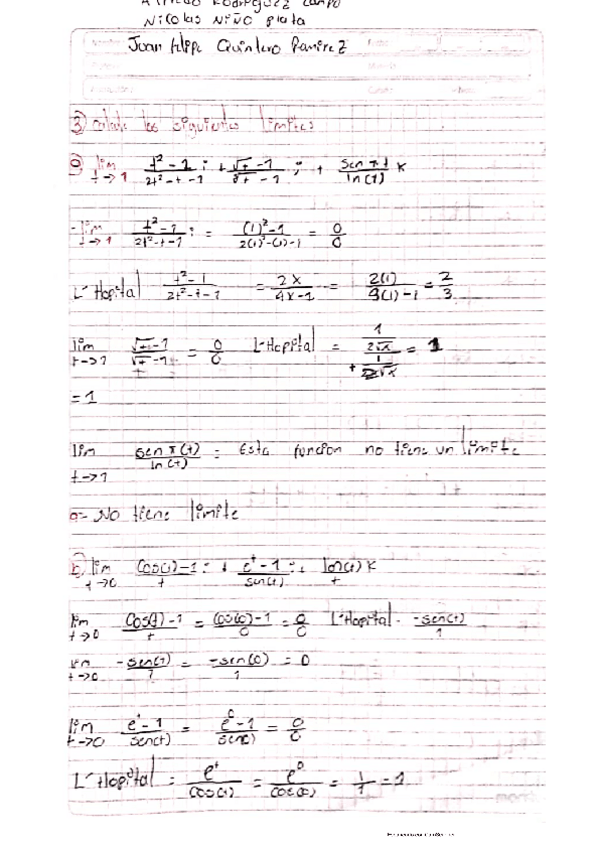 Nicolas Niño Plata
Juan Felipe Quintero Ramirez
3) Calcule los siguientes limites
a) lim t→1 t²-1/2t²-t-1 i + √t-1/ -1 j + sen π t/ln(t) k
- lim t→1 t²-1/2t²-t-1 i = (1)²-1/2(1)²-(1)-1 = 0/0
L'Hopital t²-1/2t²-t-1 = 2x/4x-1 = 2(1)/4(1)-1 = 2/3
lim t→1 √t-1/√t-1 = 0/0 L'Hopital = 1/2√x / 1/2√x = 1
= 1
lim t→1 sen π(t)/ln(t) = Esta funcion no tiene un limite
a= No tiene limite
b) lim t→0 Cos(t)-1/t i + e^t-1/sen(t) j + k
lim t→0 Cos(t)-1/t = Cos(0)-1/0 = 0/0 L'Hopital - -sen(t)/1
lim t→0 -sen(t)/1 = -sen(0)/1 = 0
lim t→0 e^t-1/sen(t) = e^0-1/sen(0) = 0/0
L'Hopital = e^t/Cos(t) = e^0/Cos(0) = 1/1 = 1